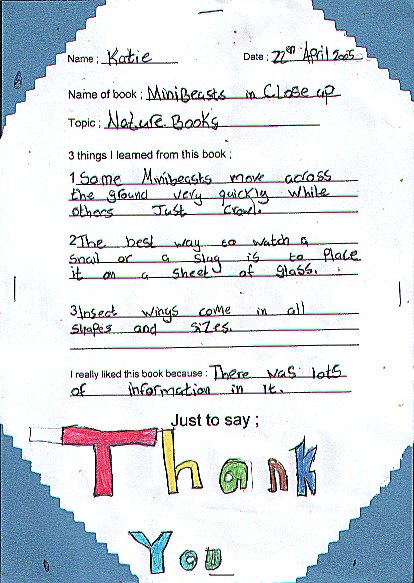 Name : Katie Date : 22nd April 2005
Name of book : MiniBeasts in Close up
Topic : Nature Books
3 things I learned from this book ;
1 Some Minibeasts move across
the ground very quickly while
others Just Crawl.
2 The best way to watch a
snail or a slug is to Place
it on a sheet of glass.
3 Insect wings come in all
shapes and sizes.
I really liked this book because : There was lots
of information in it.
Just to say ;
Thank
You